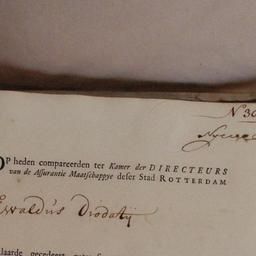 N 30
OP heden compareerden ter Kamer der DIRECTEURS
van de Assurantie Maatschappye deser Stad ROTTERDAM
Ewaldus Diodatij
laarde gecedeert